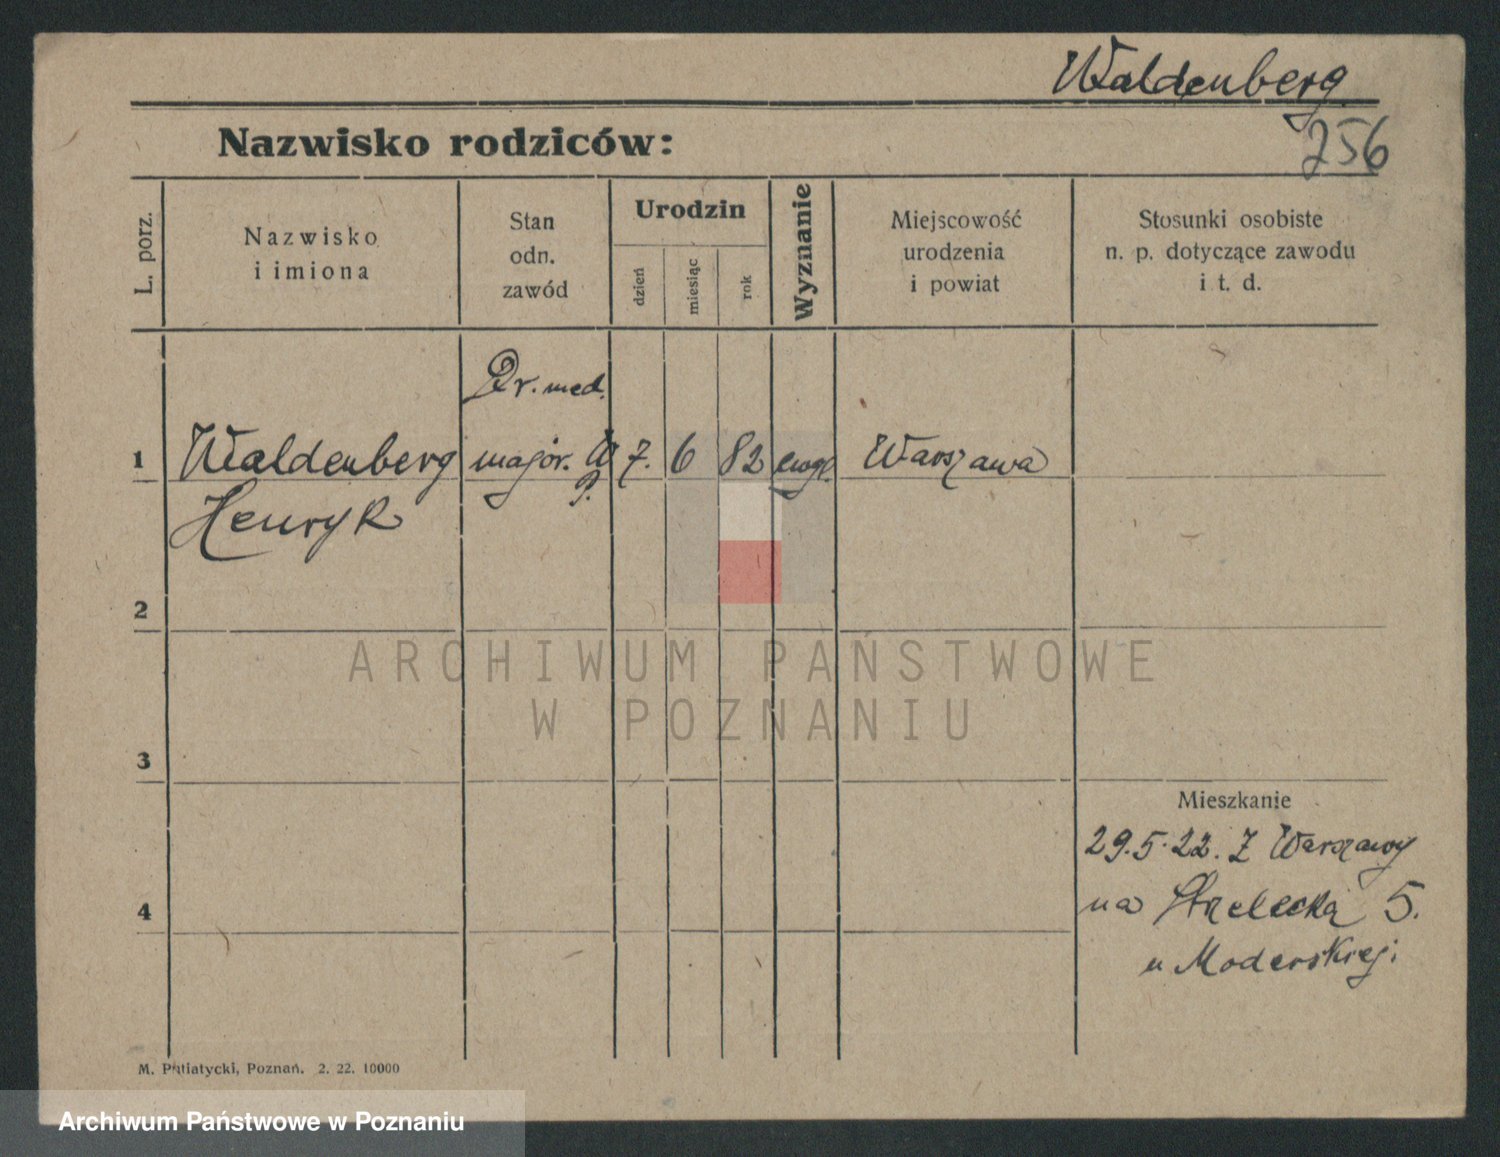 Waldenberg
256
Nazwisko rodziców:
L. porz.
Nazwisko
i imiona
Stan
odn.
zawód
Urodzin
dzień
miesiąc
rok
Wyznanie
Miejscowość
urodzenia
i powiat
Stosunki osobiste
n. p. dotyczące zawodu
i t. d.
Dr. med.
1 Waldenberg major. W 7. 6 82 ewgl. Warszawa
P.
Henryk
2
3
4
Mieszkanie
29.5.22. Z Warszawy
na Strzelecką 5.
u Moderskiej.
M. Putiatycki, Poznań. 2. 22. 10000
ARCHIWUM PAŃSTWOWE
W POZNANIU
Archiwum Państwowe w Poznaniu